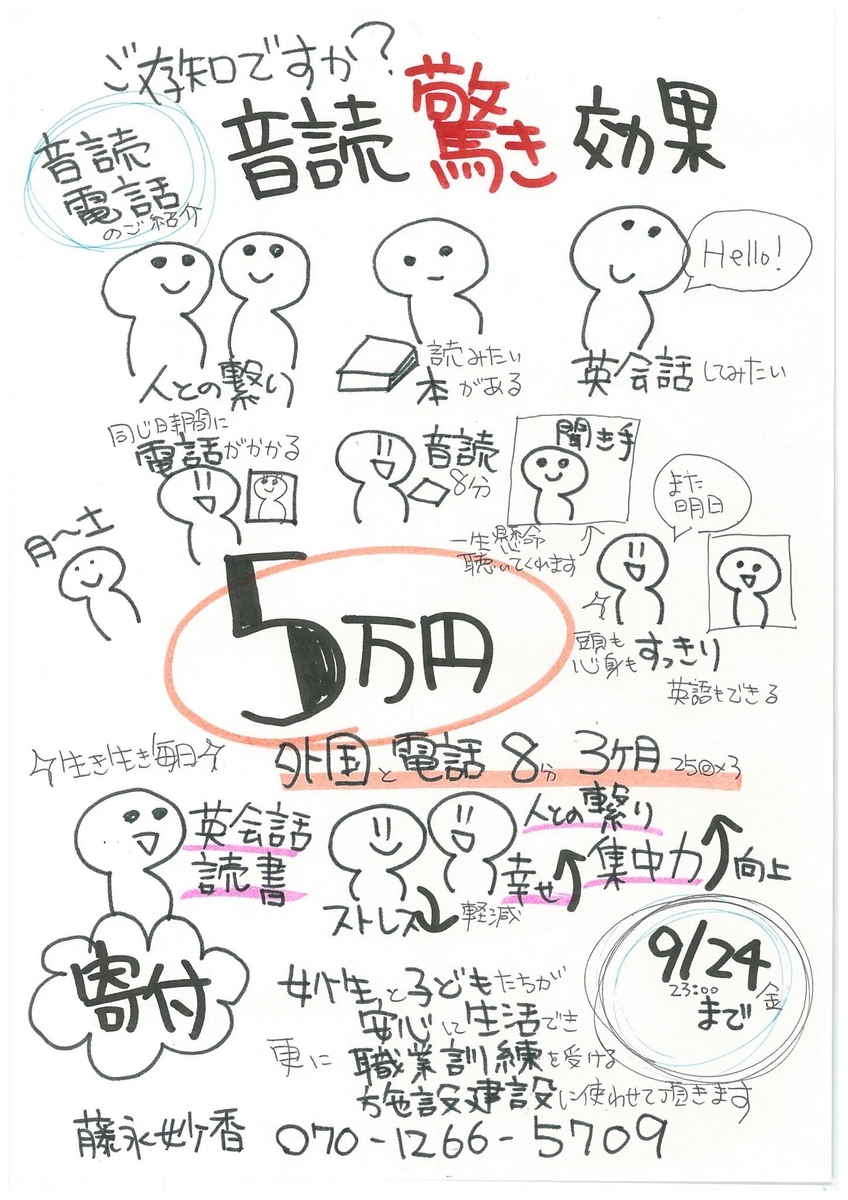 ご存知ですか?
音読驚き効果
音読
電話
のご紹介
Hello!
人との繋り
読みたい
本がある
英会話してみたい
同じ時間に
電話がかかる
音読
8分
聞き手
また
明日
月〜土
一生懸命
聴いてくれます
5万円
頭も
心身もすっきり
英語もできる
生き生き毎日
外国と電話 8分 3ヶ月 25回×3
英会話
読書
人との繋り
幸せ↑集中力↑向上
ストレス↓軽減
寄付
女性と子どもたちが
安心して生活でき
更に職業訓練を受ける
施設建設に使わせて頂きます
9/24
23:00 金
まで
藤永妙香 070-1266-5709